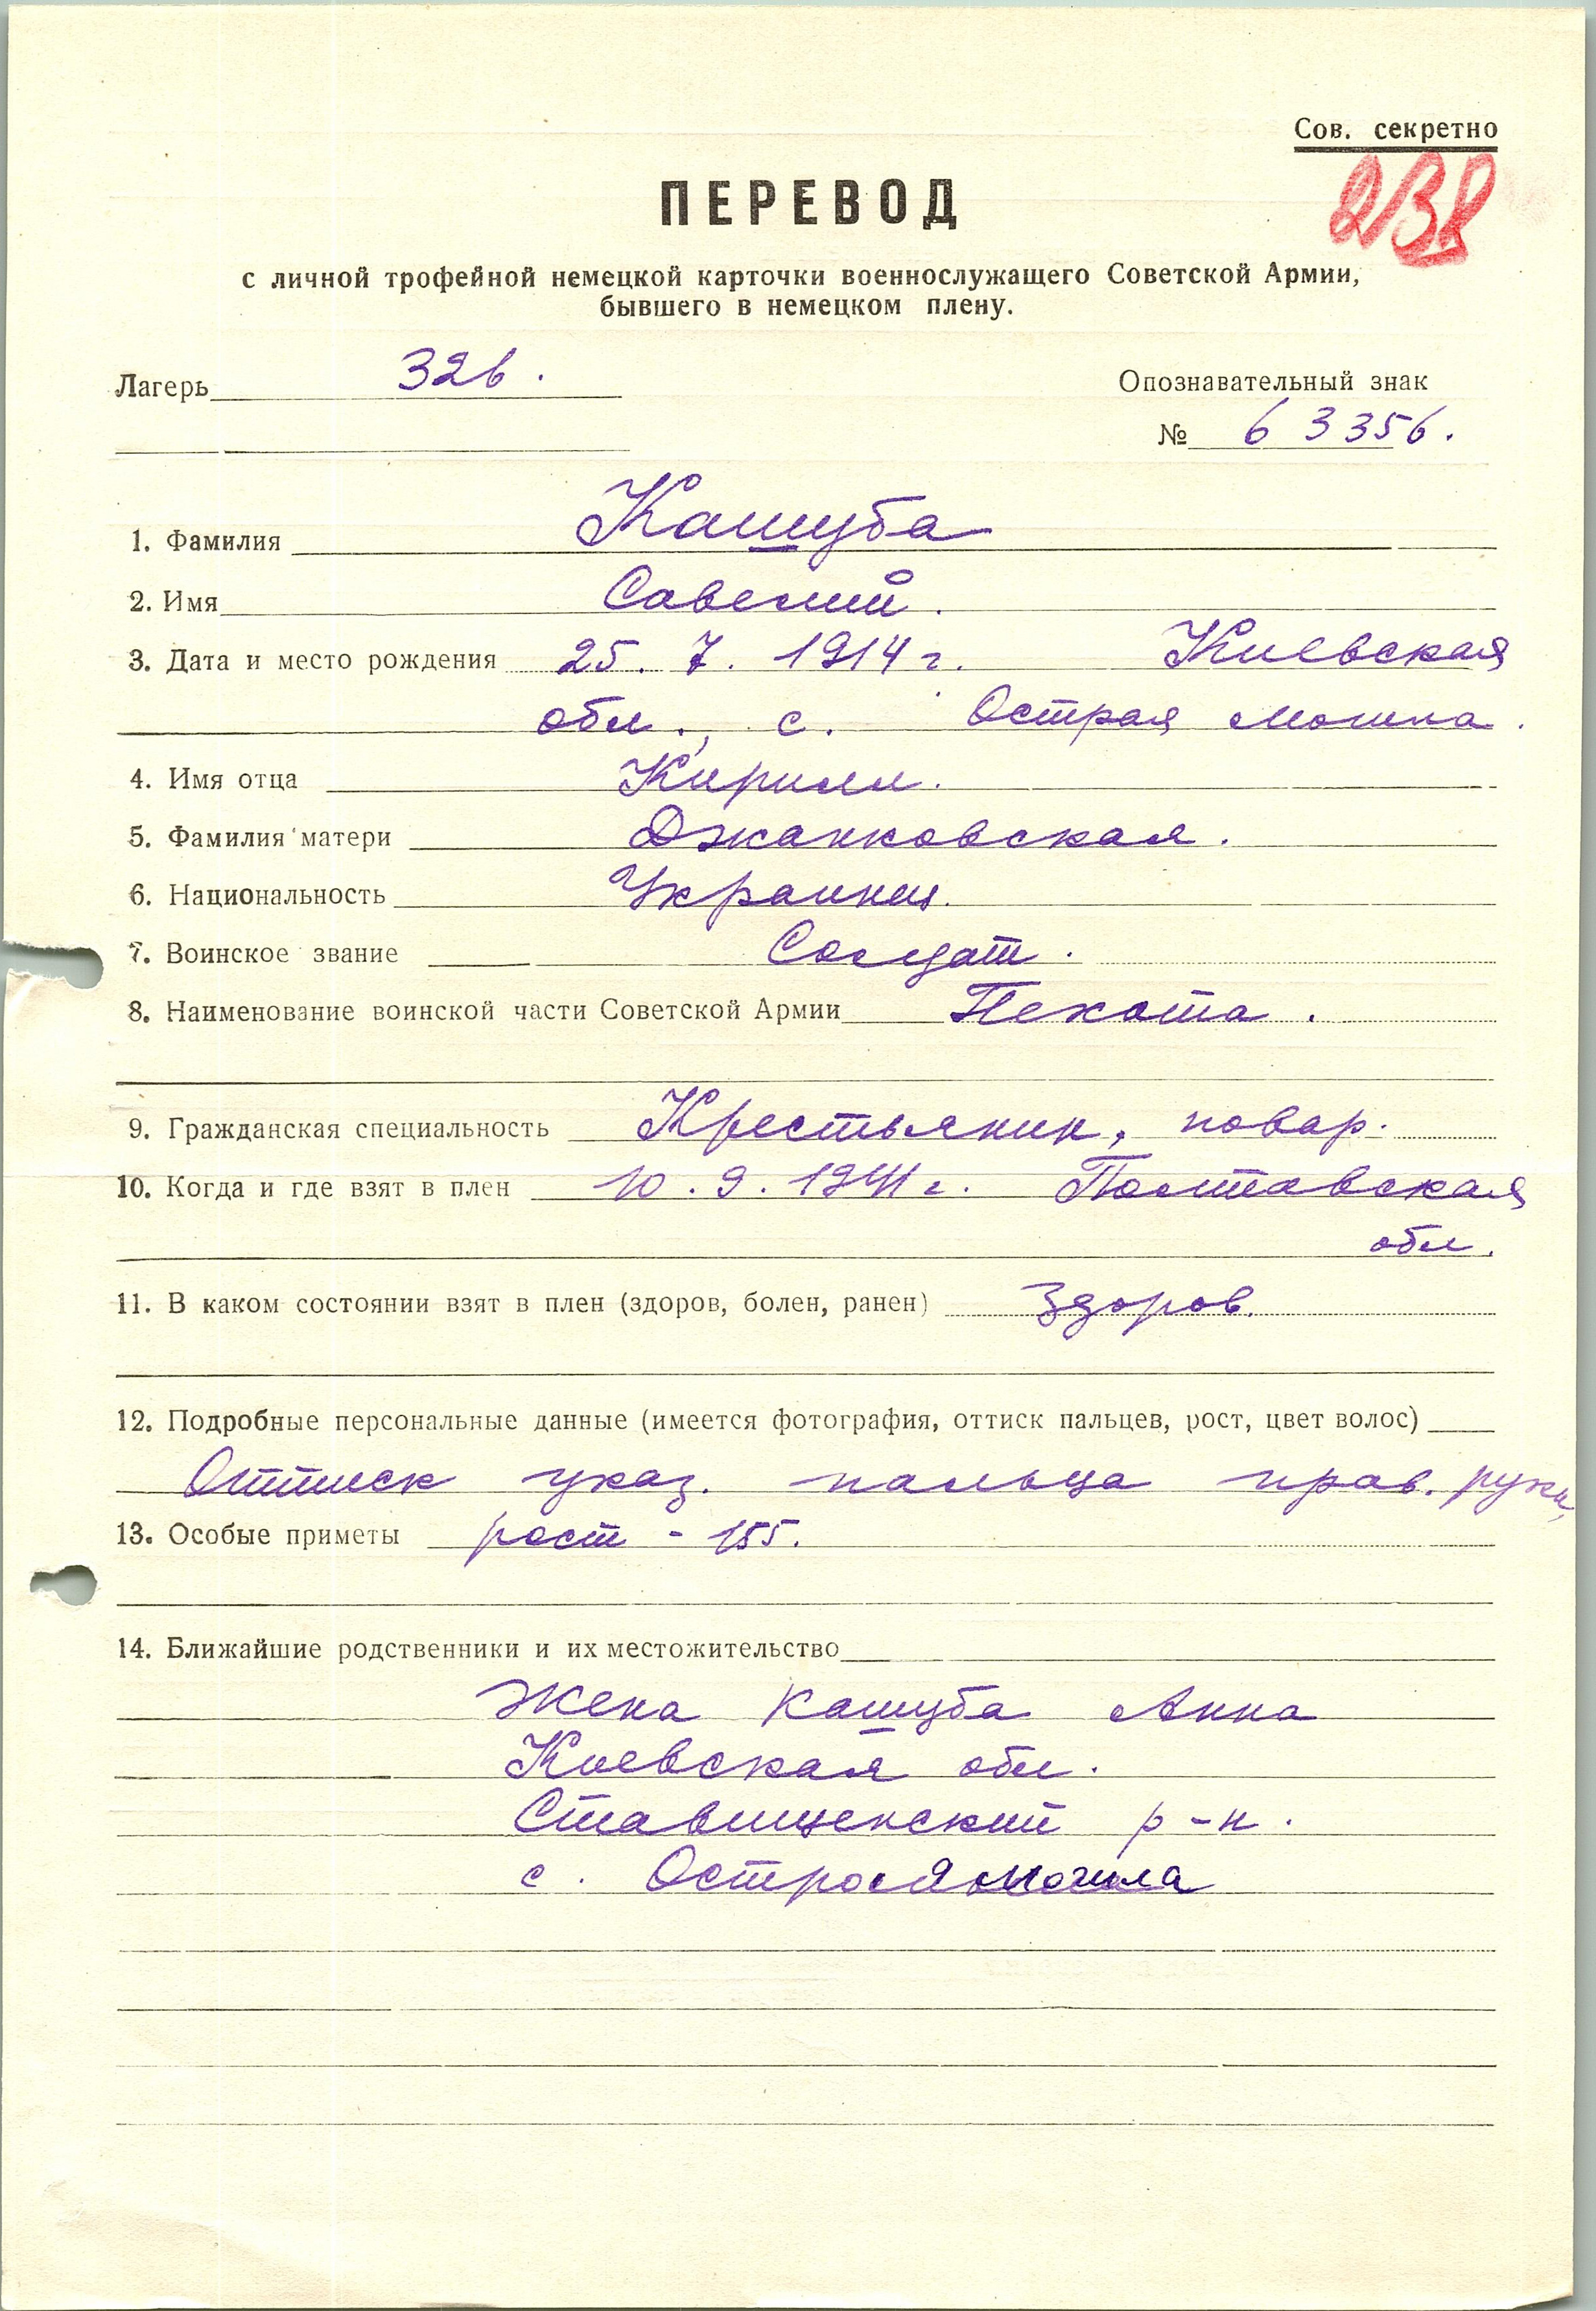 Сов. секретно
238
ПЕРЕВОД
с личной трофейной немецкой карточки военнослужащего Советской Армии,
бывшего в немецком плену.
Лагерь 326.
Опознавательный знак
№ 63356.
1. Фамилия Кашуба
2. Имя Савелий.
3. Дата и место рождения 25. 7. 1914 г. Киевская
обл., с. Острая Могила.
4. Имя отца Кирилл.
5. Фамилия матери Джанковская.
6. Национальность Украинец.
7. Воинское звание Солдат.
8. Наименование воинской части Советской Армии Пехота.
9. Гражданская специальность Крестьянин, повар.
10. Когда и где взят в плен 10. 9. 1941 г. Полтавская
обл.
11. В каком состоянии взят в плен (здоров, болен, ранен) Здоров.
12. Подробные персональные данные (имеется фотография, оттиск пальцев, рост, цвет волос)
Оттиск указ. пальца прав. руки,
13. Особые приметы рост - 155.
14. Ближайшие родственники и их местожительство
Жена Кашуба Анна
Киевская обл.
Ставищенский р-н.
с. Острая Могила